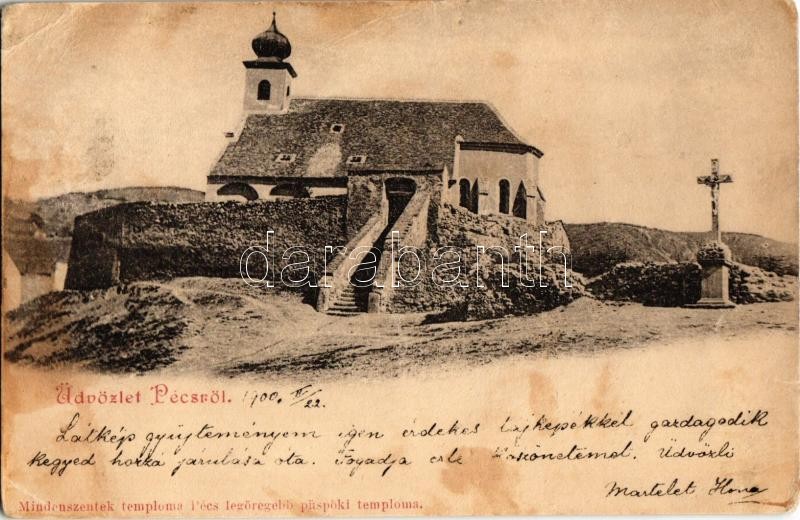 darabanth
Üdvözlet Pécsről. 1900. V/22.
Látkép gyüjteményem igen érdekes tájképékkél gazdagodik
kegyed hozzá járulása óta. Fogadja érte köszönetemet. Üdvözli
Martelet Ilona
Mindenszentek temploma Pécs legöregebb püspöki temploma.